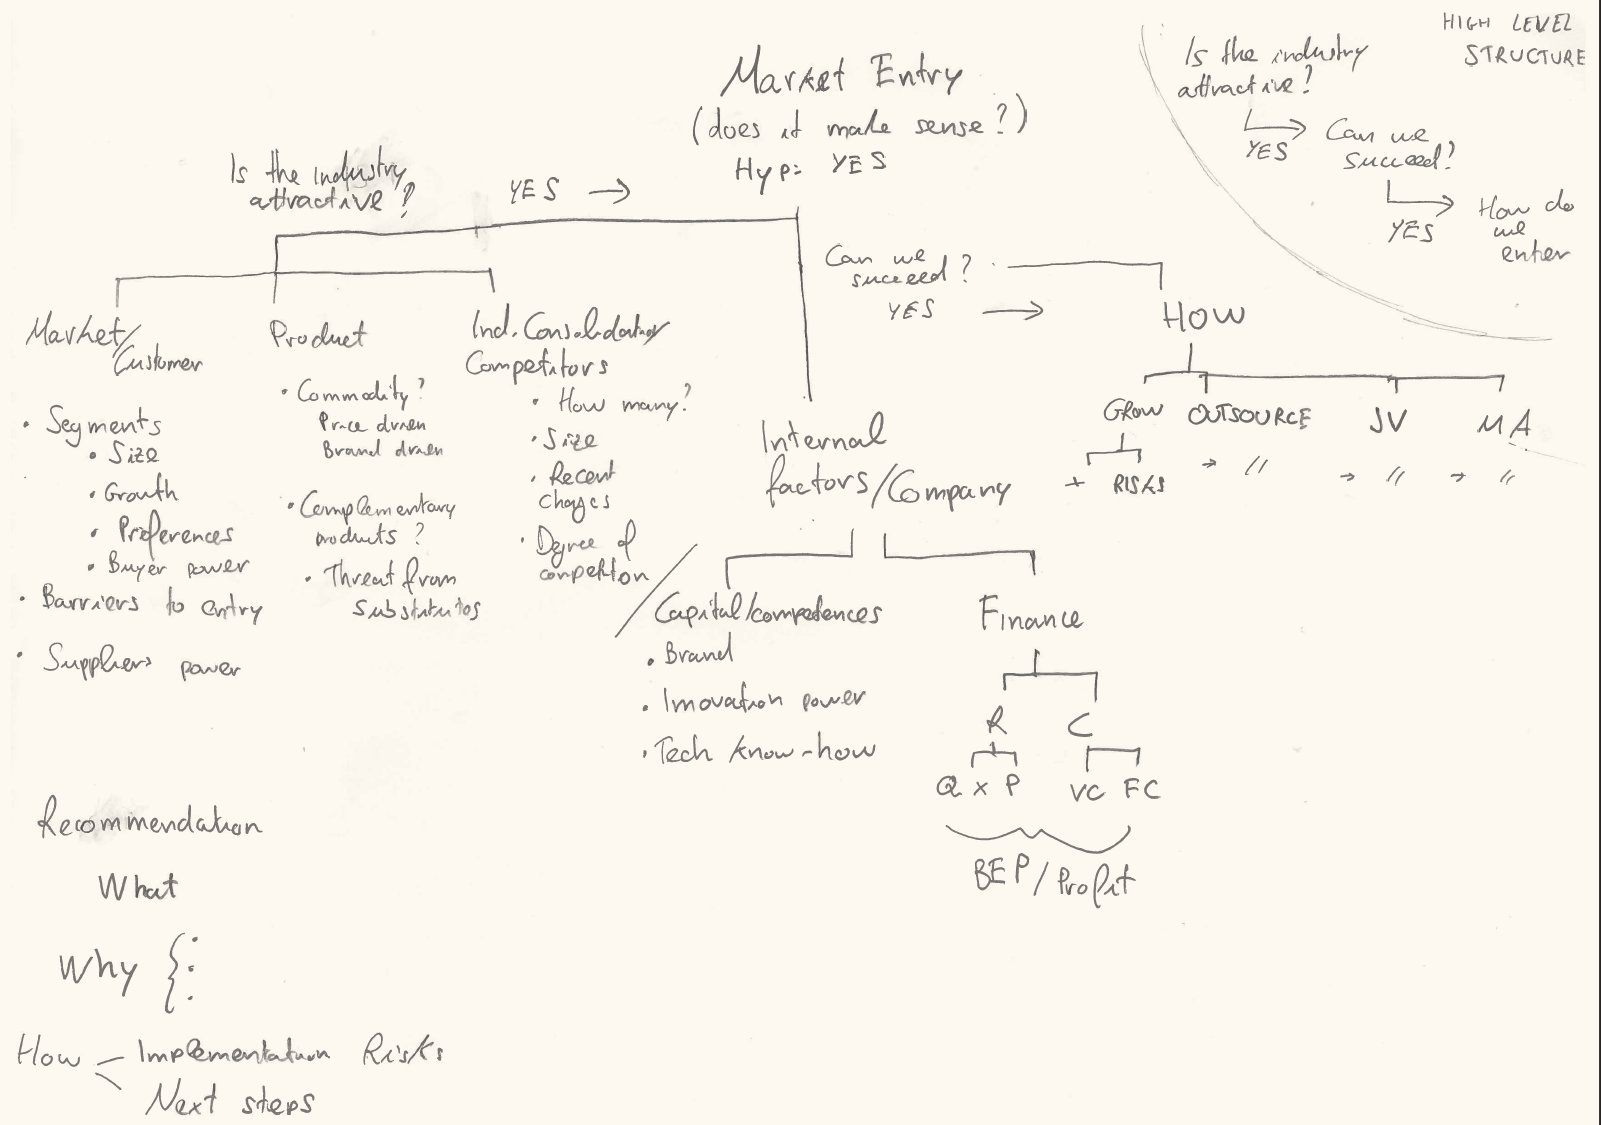 HIGH LEVEL
STRUCTURE
Is the industry
attractive?
YES
Can we
succeed?
YES
How do
we
enter
Market Entry
(does it make sense?)
Hyp: YES
Is the industry
attractive?
YES →
Can we
succeed?
YES →
Market/
Customer
• Segments
• Size
• Growth
• Preferences
• Buyer power
• Barriers to entry
• Suppliers power
Product
• Commodity?
Price driven
Brand driven
• Complementary
products?
• Threat from
substitutes
Ind. Consolidation/
Competitors
• How many?
• Size
• Recent
changes
• Degree of
competition
Internal
factors/Company
Capital/competences
• Brand
• Innovation power
• Tech know-how
Finance
R C
Q x P VC FC
BEP/Profit
HOW
GROW OUTSOURCE JV MA
+ RISKS → // → // → //
Recommendation
What
Why {
How – Implementation Risks
Next steps